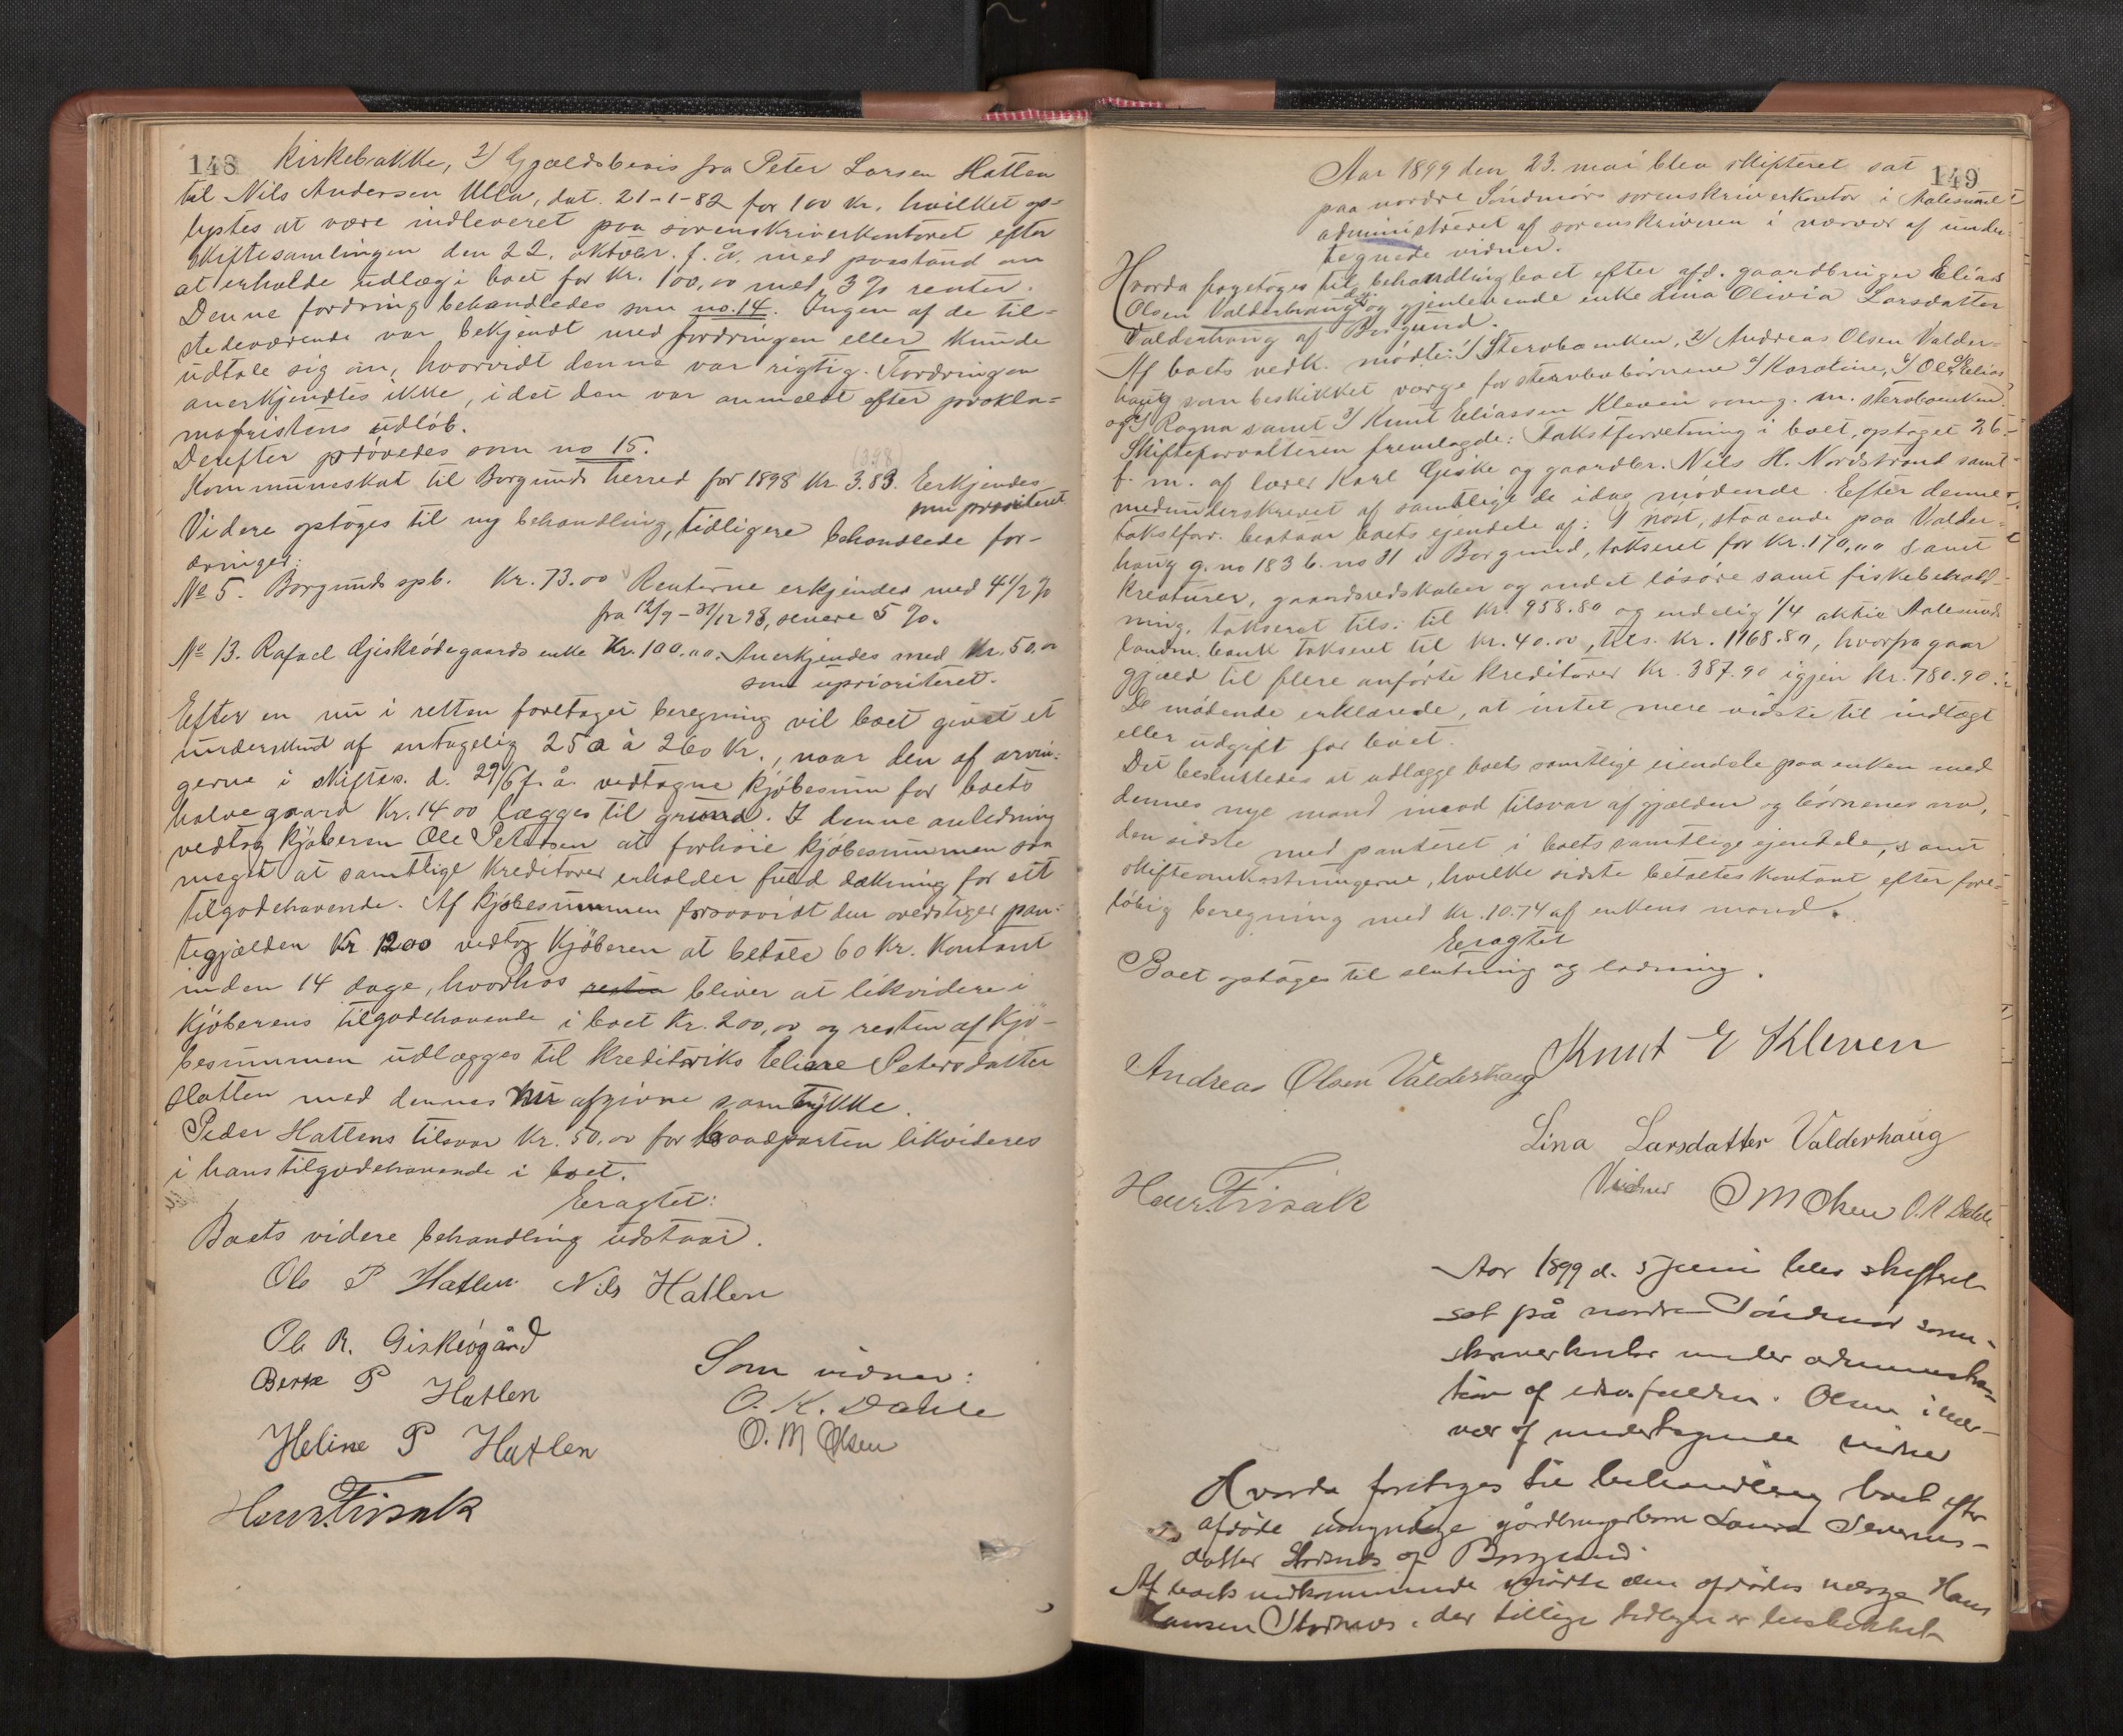 148 Kirkebakke, 2/ Gjældsbevis fra Peter Larsen Hatlen
til Nils Andersen Ulla, dat. 21-1-82 for 100 kr. hvilket op-
lystes at være indleveret paa sorenskriverkontoret efter
skiftesamlingen den 22. oktober f. å. med paastand om
at erholde udlæg i boet for kr. 100,00 med 3 % renter.
Denne fordring behandledes som no. 14. Ingen af de til-
stedeværende var bekjendt med fordringen eller kunde
udtale sig om, hvorvidt denne var rigtig. Fordringen
anerkjendtes ikke, idet den var anmeldt efter prokla-
mafristens udløb.
Derefter prøvedes som no 15.
Kommuneskat til Borgunds herred for 1898 kr. 3.83. Erkjendes
som prioriteret.
Videre optoges til ny behandling, tidligere behandlede for-
dringer:
No 5. Borgunds spb. Kr. 73.00 Renterne erkjendes med 4 1/2 %
fra 12/9 - 31/12 98, senere 5 %.
No 13. Rafael Gjiskeødegaards enke Kr. 100.00. Anerkjendes med Kr. 50.00
som uprioriteret.
Efter en nu i retten foretaget beregning vil boet givet et
underskud af antagelig 250 à 260 Kr., naar den af arvin-
gerne i skiftes. d. 29/6 f. å. vedtagne kjøbesum for boets
halve gaard Kr. 1400 lægges til grund. I denne anledning
vedtog kjøberen Ole Petersen at forhøie kjøbesummen saa
meget at samtlige kreditorer erholder fuld dækning for sit
tilgodehavende. Af kjøbesummen forsaavidt den overstiger pan-
tegjælden Kr 1200 vedtog kjøberen at betale 60 Kr. kontant
inden 14 dage, hvorhos resten bliver at likvidere i
kjøberens tilgodehavende i boet Kr. 200,00 og resten af kjø-
besummen udlægges til kreditoriks Eliane Petersdatter
Hatlen med dennes nu afgivne samtykke.
Peder Hatlens tilsvar Kr. 50.00 for baadparten likvideres
i hans tilgodehavende i boet.
Eragtet:
Boets videre behandling udstaar.
Ole P Hatlen Nils Hatlen
Ole R. Giskeøgård
Berte P Hatlen
Heline P Hatlen
Som vidner:
O. K. Dahle
O. M Olsen
Henr. Friisak
149
Aar 1899 den 23. mai blev skifteret sat
paa nordre Søndmørs sorenskriverkontor i Aalesund
administreret af sorenskriveren i nærvær af under-
tegnede vidner.
Hvorda foretoges til behandling boet efter afd. gaardbruger Elias
Olsen Valderhaug og gjenlevende enke Lina Olivia Larsdatter
Valderhaug af Borgund.
Af boets vedk. mødte: 1/ Stervboenken, 2/ Andreas Olsen Valder-
haug som beskikket værge for stervbobørnene Karoline, Ole Elias
og Ragna samt 3/ Knut Eliassen Kleven som g. m. stervboenken.
Skifteforvalteren fremlagde: Takstforretning i boet, optaget 26.
f. m. af lærer Karl Giske og gaardbr. Nils H. Nordstrand samt
medunderskrevet af samtlige de idag mødende. Efter denne
takstforr. bestaar boets ejendele af: 1 nøst, staaende paa Valder-
haug g. no 183 b. no 31 i Borgund, takseret for Kr. 170,00 samt
kreaturer, gaardsredskaber og andet løsøre samt fiskebehold-
ning, takseret tils. til Kr. 958.80 og endelig 1/4 aktie Aalesunds
landm. bank takseret til Kr. 40.00, tils. Kr. 1168.80, hvorfra gaar
gjæld til flere anførte kreditorer Kr. 387.90 igjen Kr. 780.90.
De mødende erklærede, at intet mere vidste til indtægt
eller udgift for boet.
Det besluttedes at udlægge boets samtlige eiendele paa enken med
dennes nye mand imod tilsvar af gjælden og børnenes arv,
den sidste med panteret i boets samtlige ejendele, samt
skifteomkostningerne, hvilke sidste betaltes kontant efter fore-
løbig beregning med Kr. 10.74 af enkens mand.
Eragtet
Boet optages til slutning og lodning.
Knut E Kleven
Andreas Olsen Valderhaug
Lina Larsdatter Valderhaug
Henr. Friisak
Vidner O M Olsen O. K Dahle
Aar 1899 d. 5 juni blev skifteret
sat på nordre Søndmør soren-
skriverkontor under administra-
tion af edsv. fuldm. Olsen i nær-
vær af undertegnede vidne
Hvorda foretoges til behandling boet efter
afdøde umyndige gårdbrugerbarn Laura Severins-
datter Stornes af Borgund.
Af boets vedkommende mødte den afdødes værge Hans
Hansen Stornes, der tillige tidligere er beskikket